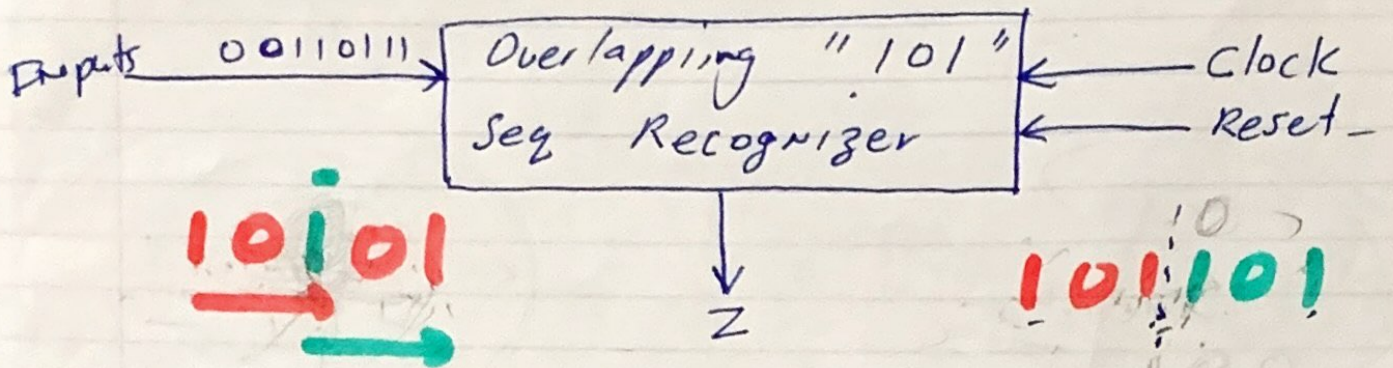 Inputs 00110111
Overlapping "101"
Seq Recognizer
Clock
Reset
10101
Z
101101